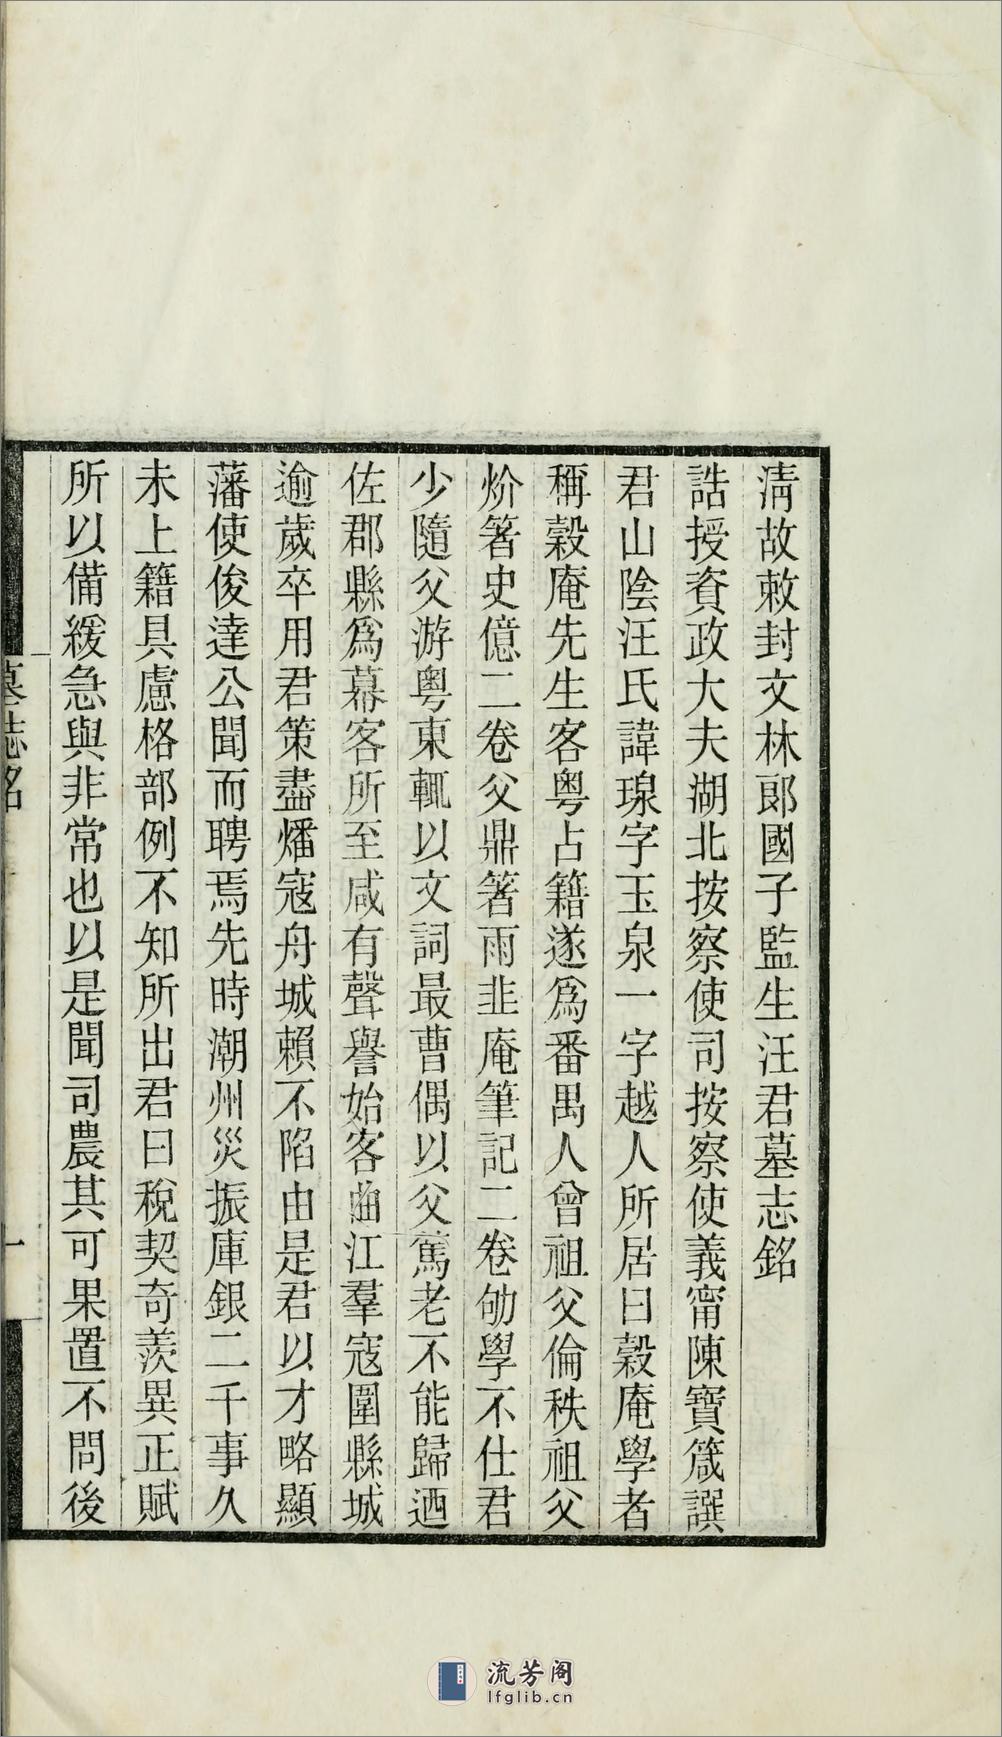 清故敕封文林郎國子監生汪君墓志銘
誥授資政大夫湖北按察使司按察使義甯陳寶箴譔
君山陰汪氏諱瑔字玉泉一字越人所居曰穀庵學者
稱穀庵先生客粵占籍遂爲番禺人曾祖父倫秩祖父
炌箸史億二卷父鼎箸雨韭庵筆記二卷劬學不仕君
少隨父游粵東輒以文詞最曹偶以父篤老不能歸迺
佐郡縣爲幕客所至咸有聲譽始客曲江羣寇圍縣城
逾歲卒用君策盡燔寇舟城賴不陷由是君以才略顯
藩使俊達公聞而聘焉先時潮州災振庫銀二千事久
未上籍具慮格部例不知所出君曰稅契奇羨異正賦
所以備緩急與非常也以是聞司農其可果置不問後
墓誌銘
一
流芳阁
lfglib.cn